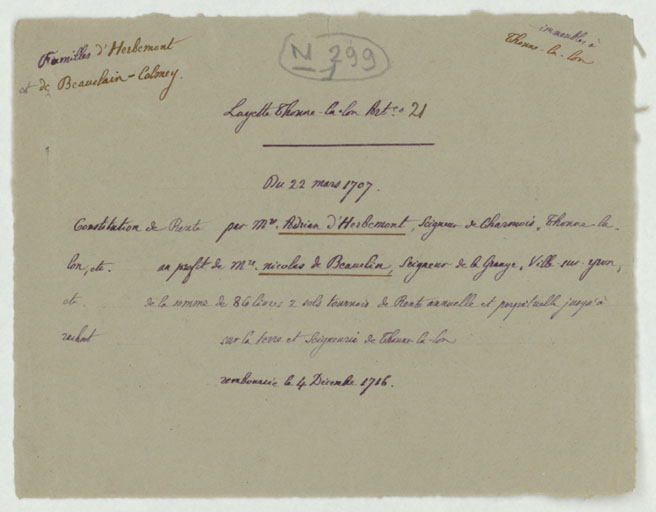 Familles d'Herbemont
et de Beauclain-Colmey.
N 299
immeubles à
Thonne-la-lon
Layette Thonne-la-lon Art.e 21
Du 22 mars 1707.
Constitution de Rente par Mre. Adrian d'Herbemont, Seigneur de Charmois, Thonne-la-
lon, etc. au profit de Mre. nicolas de Beauclin, Seigneur de la Grange, Ville-sur-yron,
etc. de la somme de 86 livres 2 sols tournois de Rente annuelle et perpétuelle jusqu'à
rachat sur la terre et Seigneurie de Thonne-la-lon
remboursée le 4 Décembre 1716.